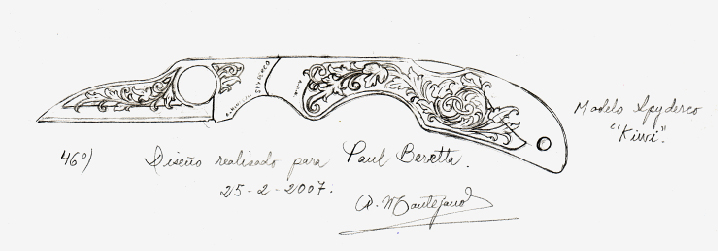 SPYDERCO
Modelo Spyderco
"Kiwi".
46º) Diseño realizado para Paul Beretta.
25-2-2007.